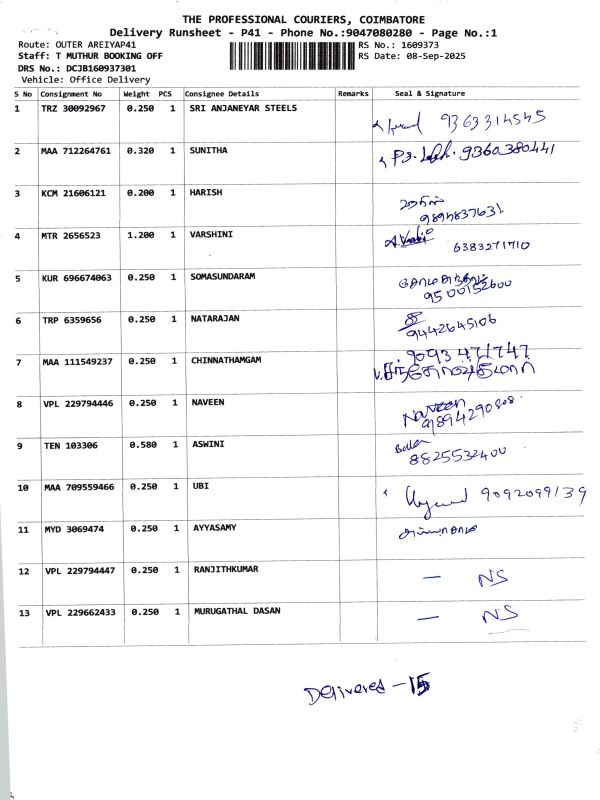 THE PROFESSIONAL COURIERS, COIMBATORE
Delivery Runsheet - P41 - Phone No.:9047080280 - Page No.:1
Route: OUTER AREIYAP41 RS No.: 1609373
Staff: T MUTHUR BOOKING OFF RS Date: 08-Sep-2025
DRS No.: DCJB160937301
Vehicle: Office Delivery
S No Consignment No Weight PCS Consignee Details Remarks Seal & Signature
1 TRZ 30092967 0.250 1 SRI ANJANEYAR STEELS 9363314545
2 MAA 712264761 0.320 1 SUNITHA 9360380441
3 KCM 21606121 0.200 1 HARISH
9894837631
4 MTR 2656523 1.200 1 VARSHINI 6383271710
5 KUR 696674063 0.250 1 SOMASUNDARAM சோமசுந்தரம்
9500152600
6 TRP 6359656 0.250 1 NATARAJAN
9442645106
7 MAA 111549237 0.250 1 CHINNATHAMGAM 9093471747
8 VPL 229794446 0.250 1 NAVEEN Naveen
9894290808
9 TEN 103306 0.580 1 ASWINI
8825532400
10 MAA 709559466 0.250 1 UBI 9092099139
11 MYD 3069474 0.250 1 AYYASAMY அய்யாசாமி
12 VPL 229794447 0.250 1 RANJITHKUMAR — NS
13 VPL 229662433 0.250 1 MURUGATHAL DASAN — NS
Delivered - 15